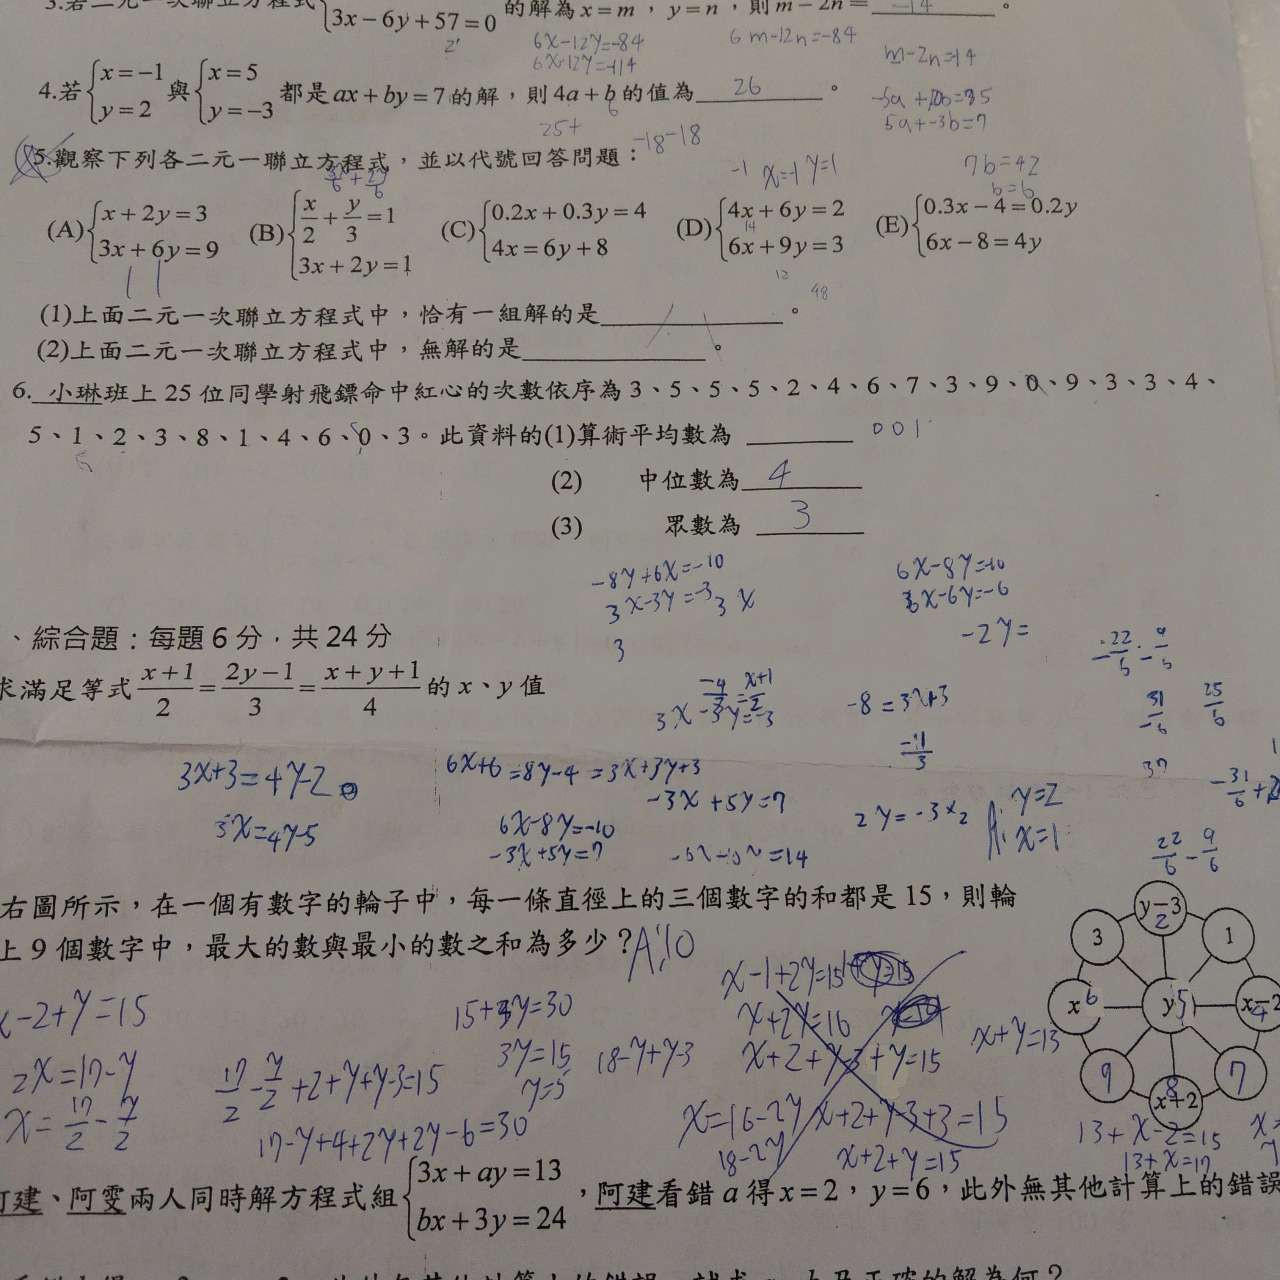 3x-6y+57=0 的解為x=m,y=n,則m-2n= -14 。
6x-12y=-84
6m-12n=-84
6x-12y=-114
m-2n=14
4.若{x=-1 y=2 與{x=5 y=-3 都是ax+by=7的解,則4a+b的值為 26 。
-5a+10b=35
5a+-3b=7
25+
-18-18
7b=42
b=6
5.觀察下列各二元一聯立方程式,並以代號回答問題:
-1 x=-1 y=1
(A){x+2y=3 3x+6y=9 (B){x/2+y/3=1 3x+2y=1 (C){0.2x+0.3y=4 4x=6y+8 (D){4x+6y=2 6x+9y=3 (E){0.3x-4=0.2y 6x-8=4y
14
12
48
(1)上面二元一次聯立方程式中,恰有一組解的是 。
(2)上面二元一次聯立方程式中,無解的是 。
6. 小琳班上25位同學射飛鏢命中紅心的次數依序為3、5、5、5、2、4、6、7、3、9、0、9、3、3、4、
5、1、2、3、8、1、4、6、0、3。此資料的(1)算術平均數為 001
(2) 中位數為 4
(3) 眾數為 3
-8y+6x=-10
3x-3y=-3
6x-8y=-10
-2y=
3
、綜合題:每題6分,共24分
求滿足等式 x+1/2=2y-1/3=x+y+1/4 的x、y值
3x-3y=-3
-8=3x+3
-11/3
31/-6
25/6
37
3x+3=4y-2
3x=4y-5
6x+6=8y-4=3x+3y+3
-3x+5y=7
6x-8y=-10
-3x+5y=7
=14
2y=-3x2
A: y=2
x=1
22/6-9/6
右圖所示,在一個有數字的輪子中,每一條直徑上的三個數字的和都是15,則輪
上9個數字中,最大的數與最小的數之和為多少?A:10
y-3 2
3
1
x 6
y 5
x-2 4
9
7
x+2 8
x-2+y=15
2x=17-y
x=17/2-y/2
17/2-y/2+2+y+y-3=15
17-y+4+2y+2y-6=30
15+3y=30
3y=15
y=5
18-y+y-3
x-1+2y=15
x+2y=16
x+2+y-3+y=15
x=16-2y
18-2y
x+2+y-3+3=15
x+2+y=15
x+y=13
13+x-2=15
13+x=17
阿建、阿雯兩人同時解方程式組{3x+ay=13 bx+3y=24,阿建看錯a得x=2,y=6,此外無其他計算上的錯誤